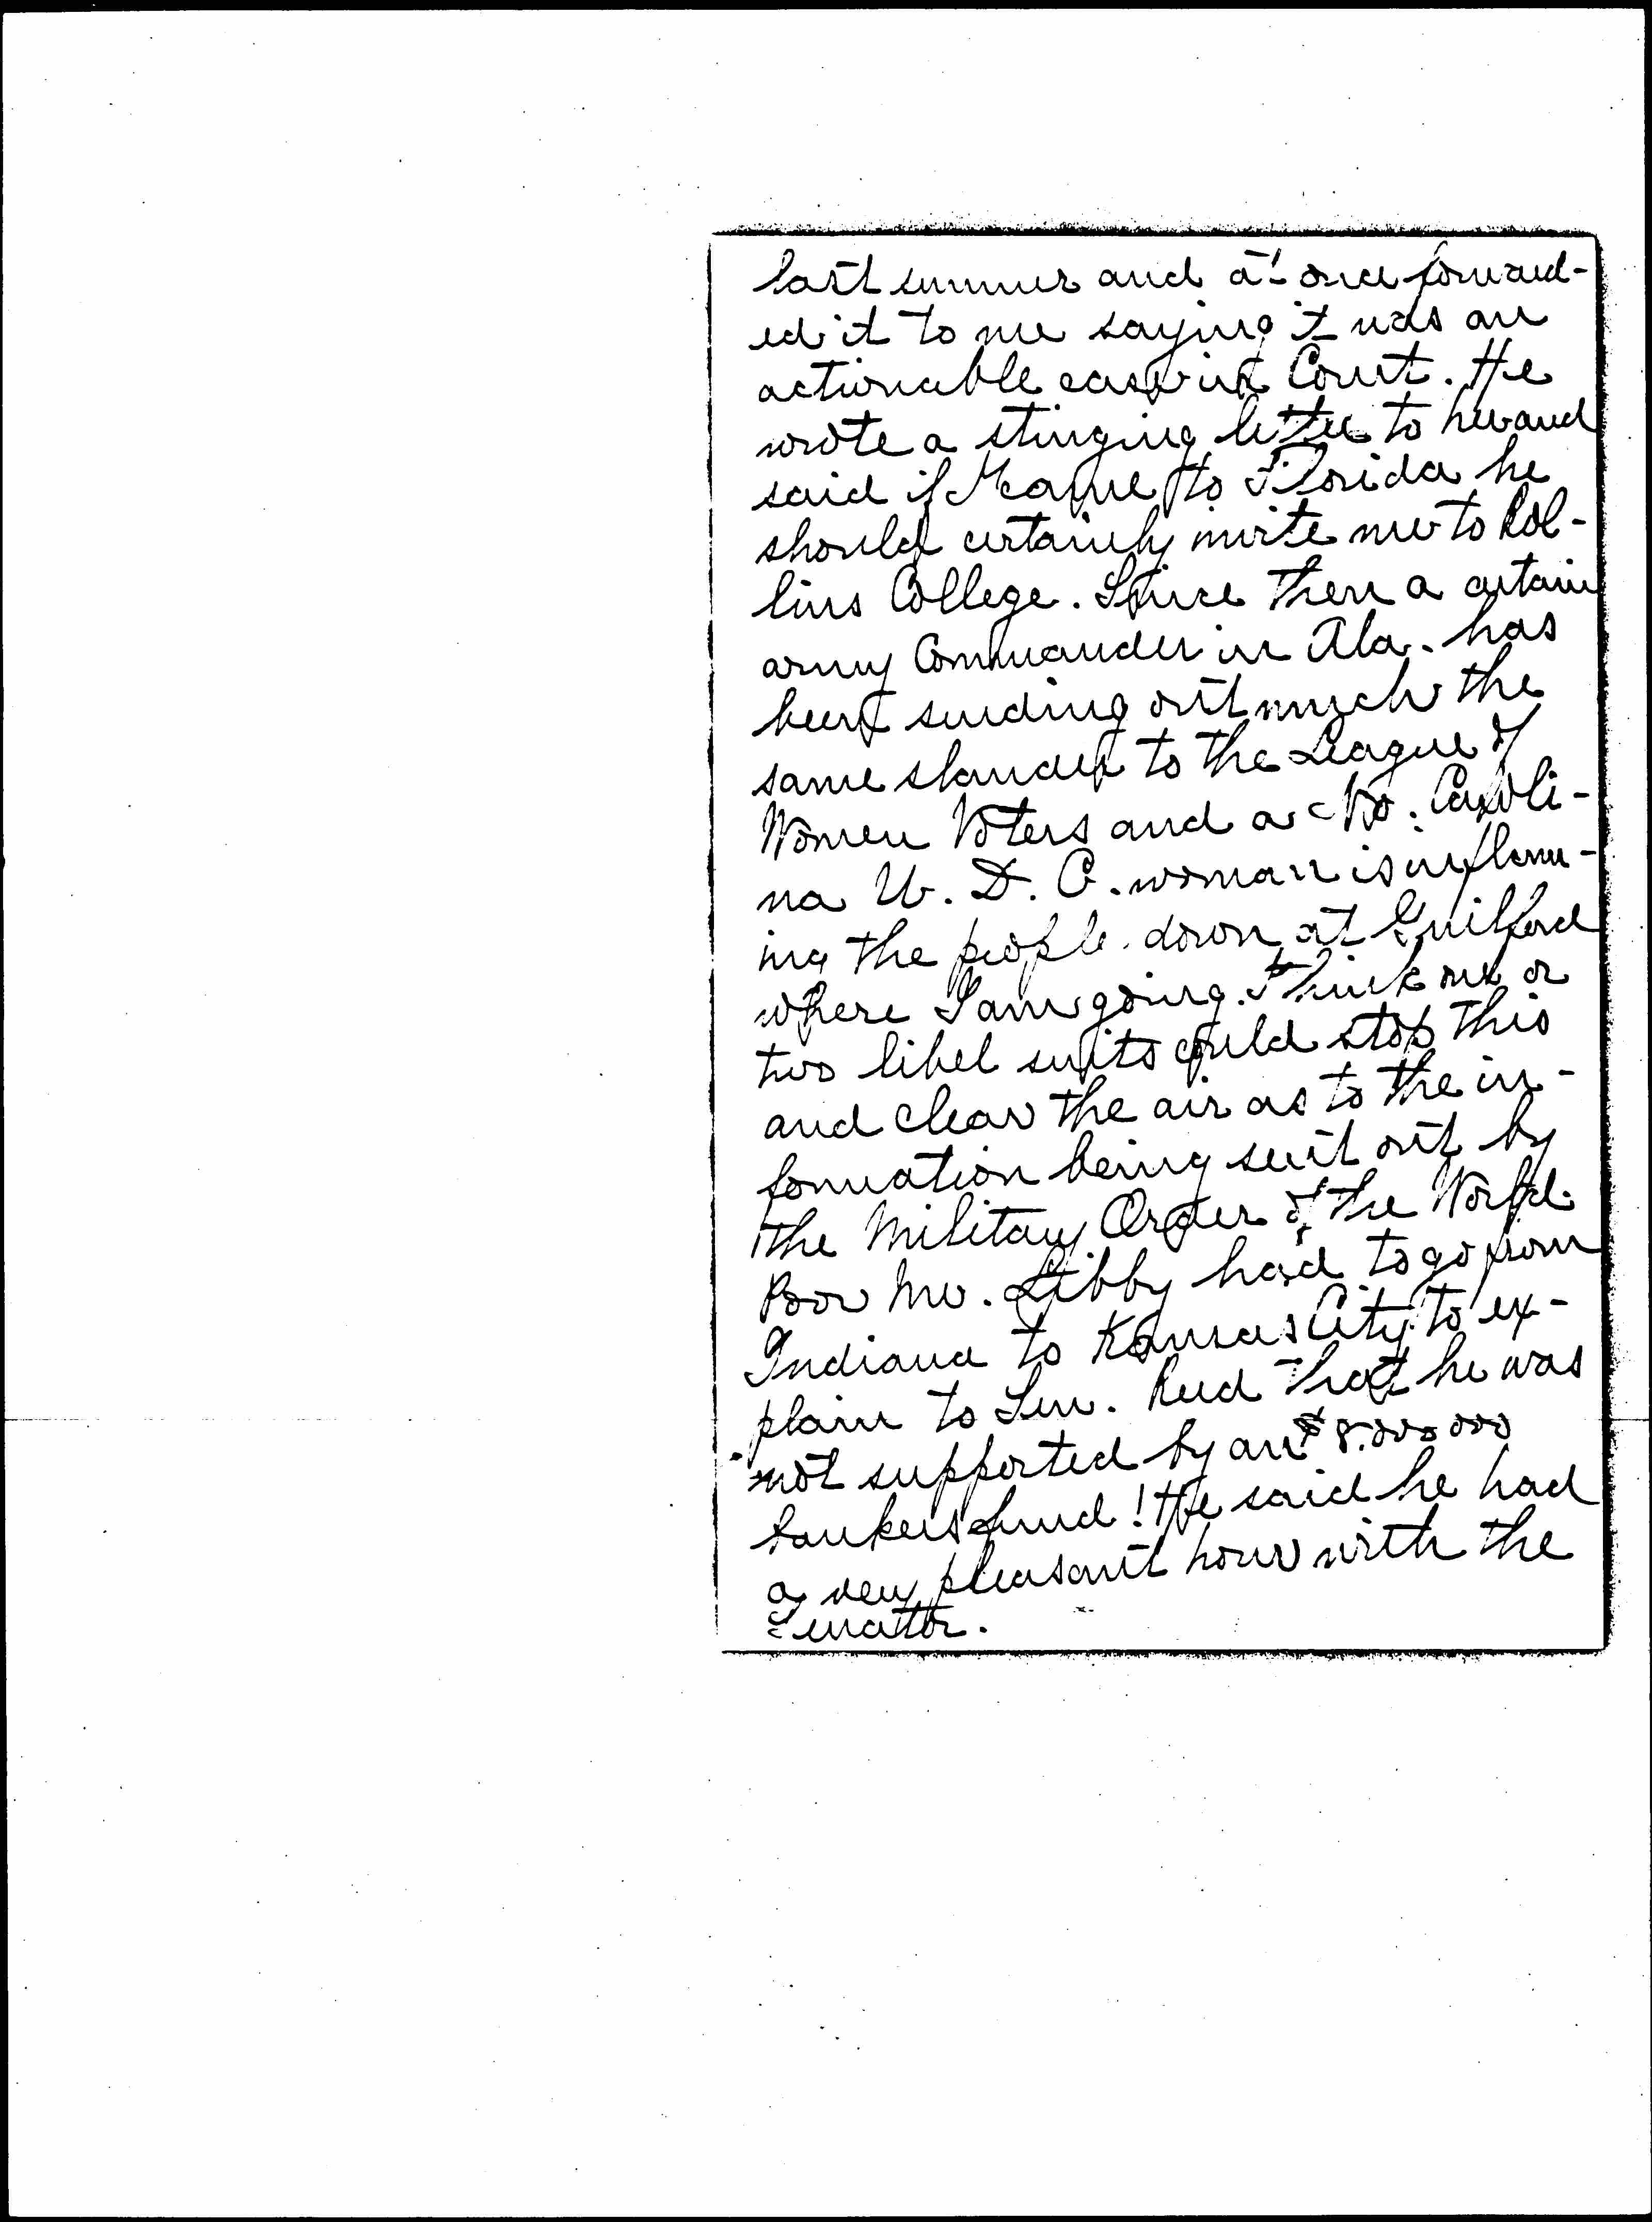 last summer and at once forward-
ed it to me saying it was an
actionable case in Court. He
wrote a stinging letter to her and
said if I came to Florida he
should certainly invite me to Rol-
lins College. Since then a certain
army Commander in Ala. has
been sending out much the
same slander to the League of
Women Voters and a No. Caroli-
na U. D. C. woman is inflam-
ing the people down at Guilford
where I am going. I think one or
two libel suits could stop this
and clear the air as to the in-
formation being sent out by
the Military Order of the World.
Poor Mr. Libby had to go from
Indiana to Kansas City to ex-
plain to Sen. Reed that he was
not supported by an $8.000000
bankers fund! He said he had
a very pleasant hour with the
Senator.